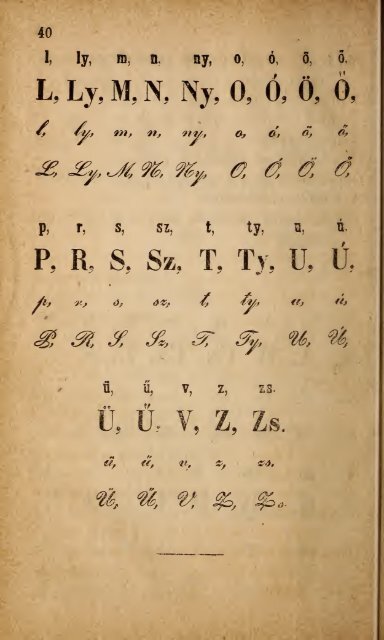 40
l, ly, m, n, ny, o, ó, ö, ő.
L, Ly, M, N, Ny, O, Ó, Ö, Ő,
l, ly, m, n, ny, o, ó, ö, ő,
L, Ly, M, N, Ny, O, Ó, Ö, Ő,
p, r, s, sz, t, ty, u, ú.
P, R, S, Sz, T, Ty, U, Ú,
p, r, s, sz, t, ty, u, ú,
P, R, S, Sz, T, Ty, U, Ú,
ü, ű, v, z, zs.
Ü, Ű, V, Z, Zs.
ü, ű, v, z, zs.
Ü, Ű, V, Z, Zs.